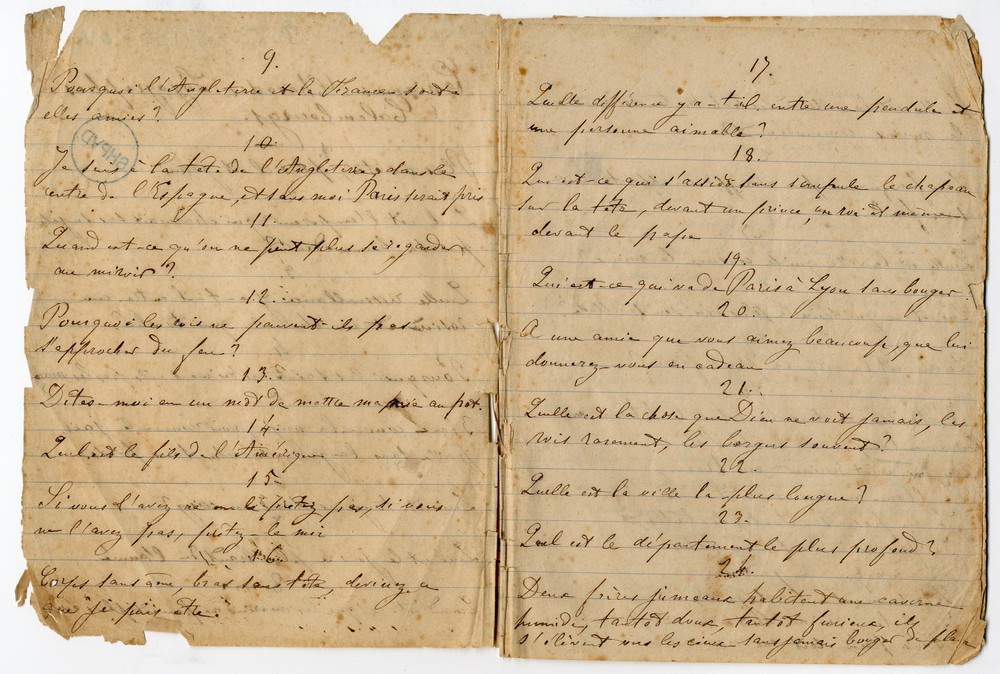 9.
Pourquoi l'Angleterre et la France sont
elles amies ?
10.
Je suis à la tête de l'Angleterre, dans le
centre de l'Espagne, et sans moi Paris serait pris
11.
Quand est-ce qu'on ne peut plus se regarder
au miroir ?
12.
Pourquoi les rois ne peuvent-ils pas
s'approcher du feu ?
13.
Dites-moi en un mot de mettre ma au pot.
14.
Quel est le fils de l'Amérique
15
Si vous l'avez ne me le prêtez pas, si vous
ne l'avez pas, prêtez-le moi
16.
Corps sans âme, bras sans tête, devinez ce
que je puis être.
SHPAD
17.
Quelle différence y a-t-il entre une pendule et
une personne aimable ?
18.
Qui est-ce qui s'assied sans scrupule le chapeau
sur la tête, devant un prince, un roi et même
devant le pape
19.
Qui est-ce qui va de Paris à Lyon sans bouger.
20.
A une amie que vous aimez beaucoup, que lui
donnerez-vous en cadeau
21.
Quelle est la chose que Dieu ne voit jamais, les
rois rarement, les bergers souvent ?
22.
Quelle est la ville la plus longue ?
23.
Quel est le département le plus profond ?
24.
Deux frères jumeaux habitent une caverne
humide, tantôt doux, tantôt furieux, ils
s'élèvent vers les cieux sans jamais bouger de place